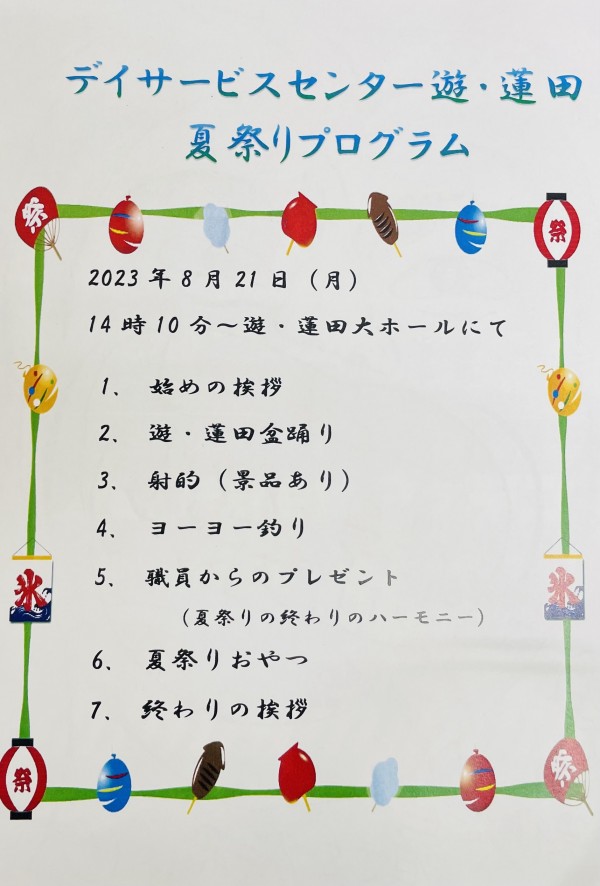 デイサービスセンター遊・蓮田
夏祭りプログラム
祭
祭
2023年8月21日（月）
14時10分～遊・蓮田大ホールにて
1、 始めの挨拶
2、 遊・蓮田盆踊り
3、 射的（景品あり）
4、 ヨーヨー釣り
5、 職員からのプレゼント
（夏祭りの終わりのハーモニー）
氷
氷
6、 夏祭りおやつ
7、 終わりの挨拶
祭
祭